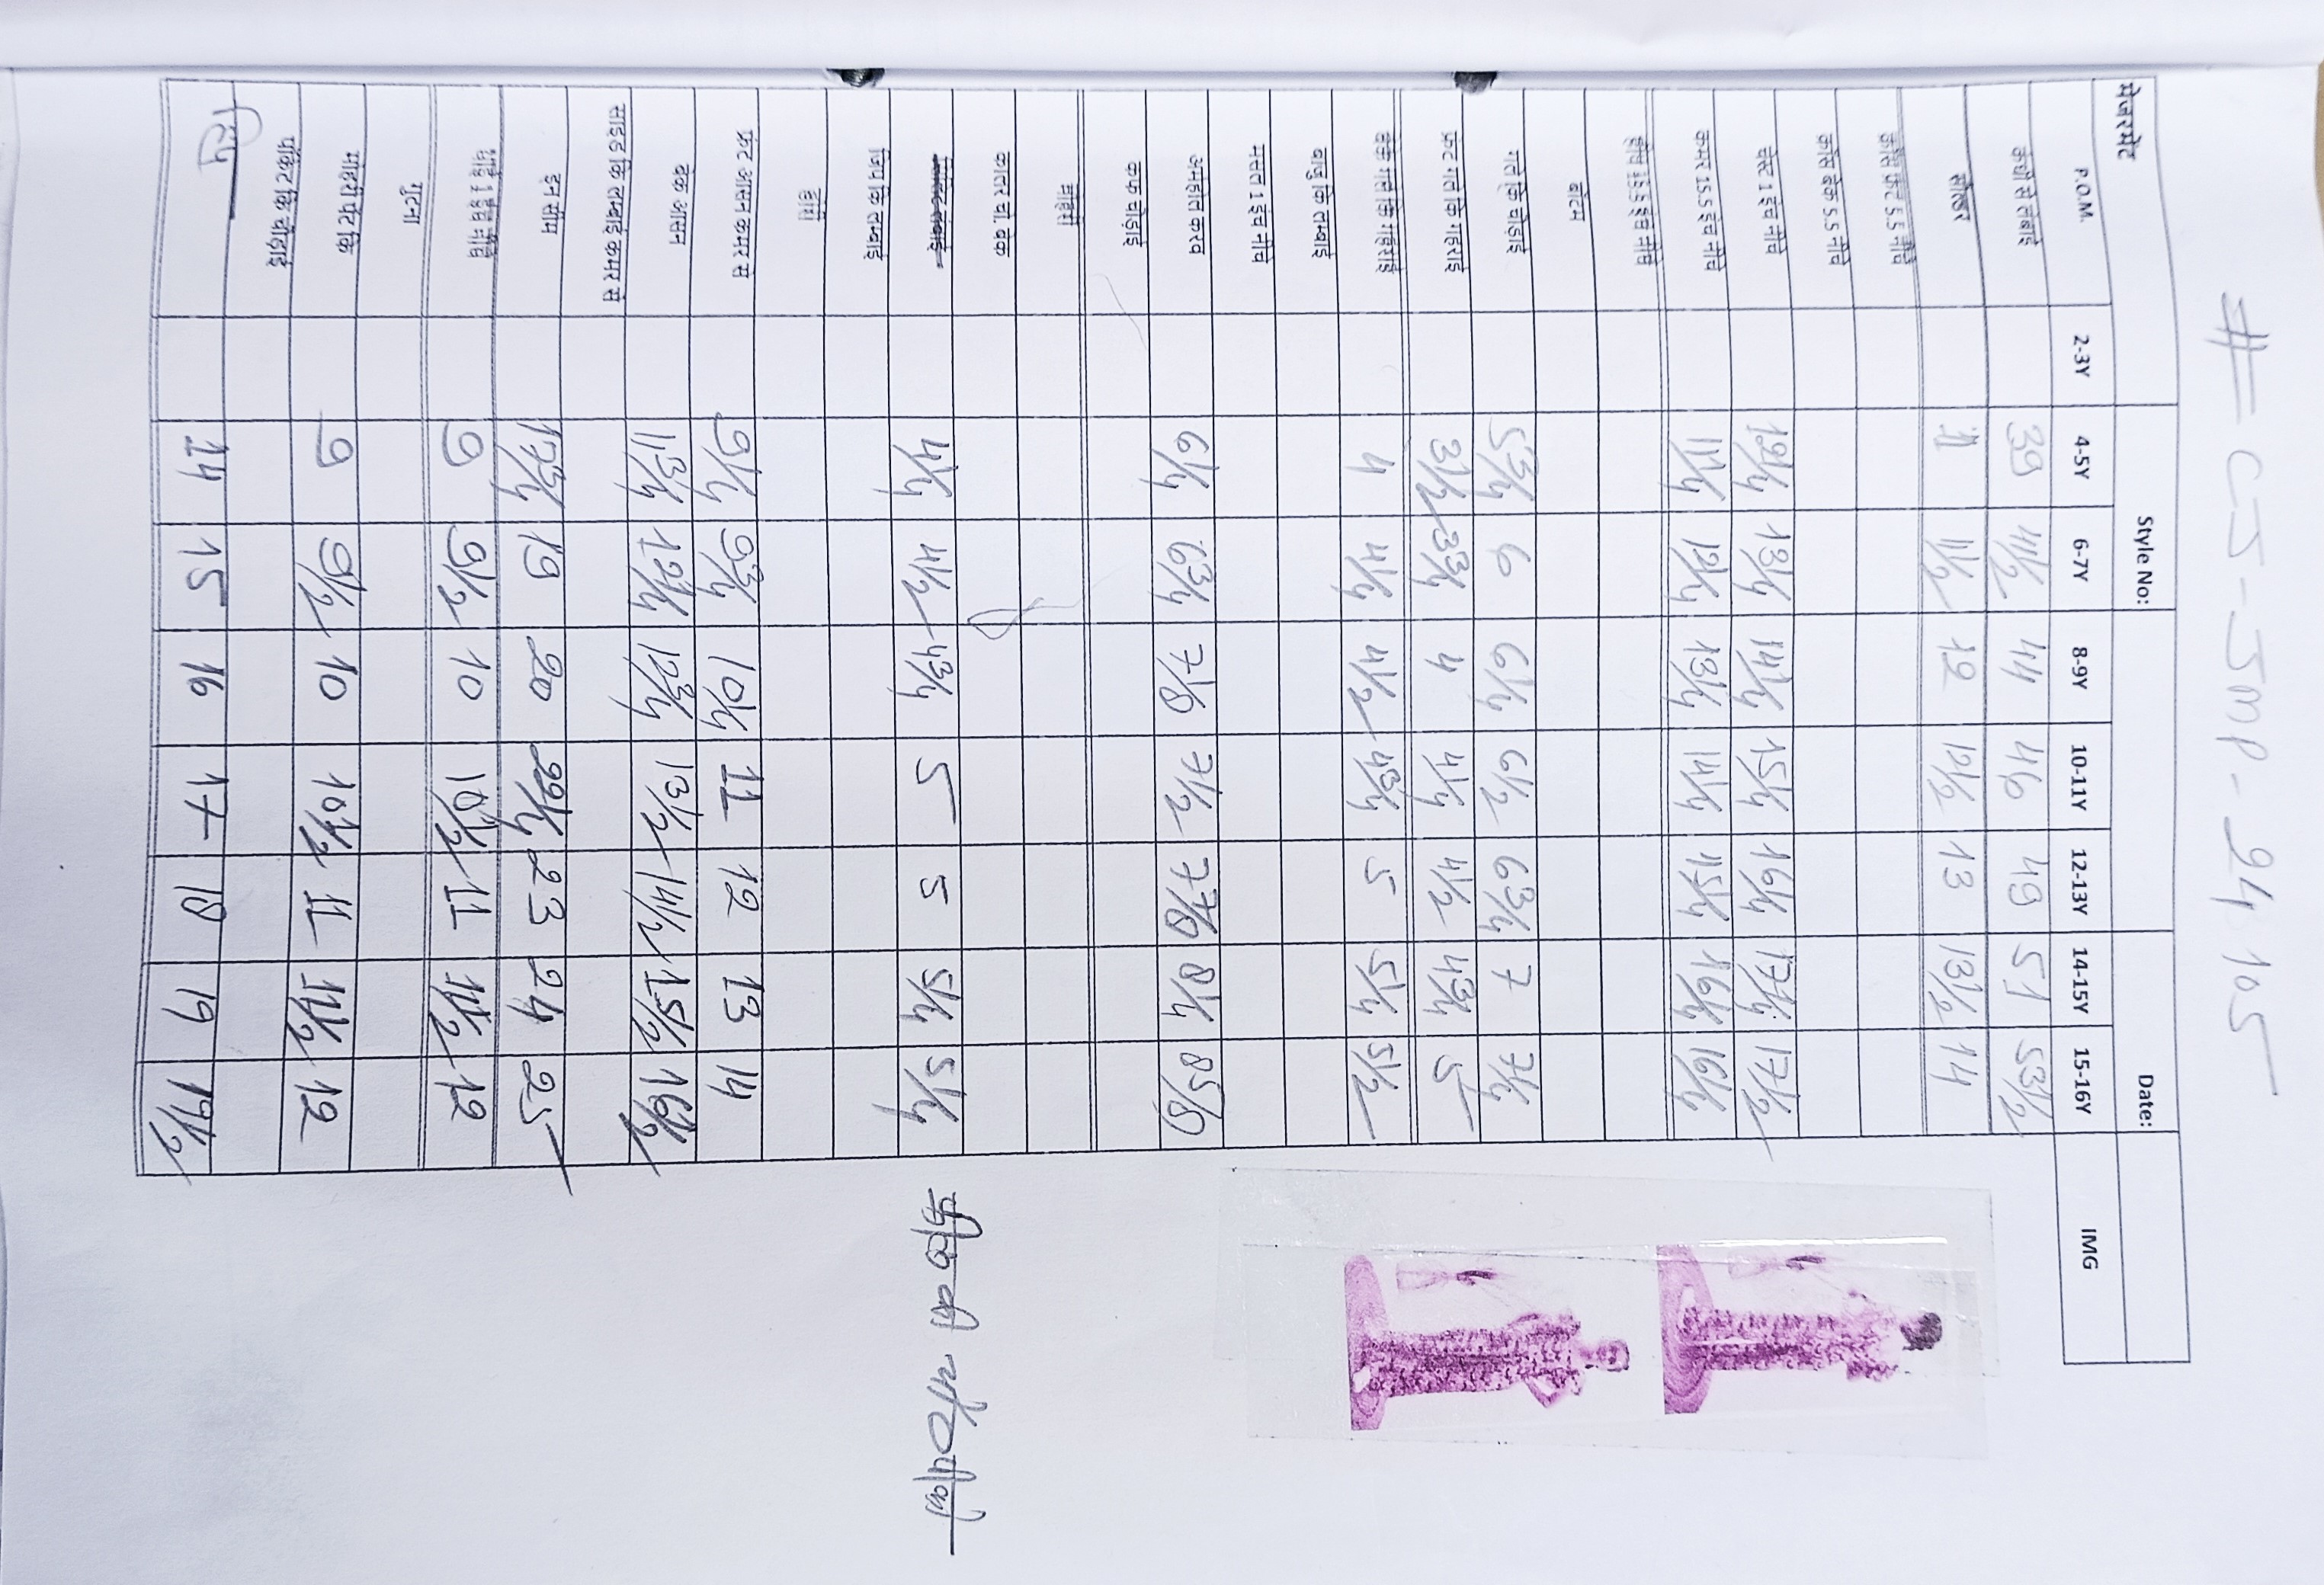 # = CJ-Jmp-24105
मेजरमेंट Style No: Date:
P.O.M. 2-3Y 4-5Y 6-7Y 8-9Y 10-11Y 12-13Y 14-15Y 15-16Y IMG
कंधो से लंबाई 39 41½ 44 46 49 51 53½
सोल्डर 11 11½ 12 12½ 13 13½ 14
क्रॉस फ्रंट 5.5 नीचे
क्रॉस बेक 5.5 नीचे
चेस्ट 1 इंच नीचे 12¼ 13¼ 14¼ 15¼ 16¼ 17¼ 17½
कमर 15.5 इंच नीचे 11¼ 12¼ 13¼ 14¼ 15¼ 16¼ 16¼
हीप 15.5 इंच नीचे
बॉटम
गले कि चोडाई 5¾ 6 6¼ 6½ 6¾ 7 7¼
फ्रंट गले कि गहराई 3½ 3¾ 4 4¼ 4½ 4¾ 5
बेक गले कि गहराई 4 4¼ 4½ 4¾ 5 5¼ 5½
बाजु कि लम्बाई
मसल 1 इंच नीचे
अर्महोल करव 6¼ 6¾ 7⅛ 7½ 7⅞ 8¼ 8⅝
कफ चोड़ाई
मोहरी
कालर बो. बेक
4¼ 4½ 4¾ 5 5 5¼ 5¼
जिप कि लम्बाई
हीप
फ्रंट आसन कमर से 9¼ 9¾ 10¼ 11 12 13 14
बेक आसन 11¾ 12¼ 12¾ 13½ 14½ 15½ 16½
साइड कि लम्बाई कमर से
इन सीम 17¾ 19 20 22¼ 23 24 25
थाई 1 इंच नीचे 9 9½ 10 10½ 11 11½ 12
घुटना
मोहरी पेट कि 9 9½ 10 10½ 11 11½ 12
पॉकेट कि चौड़ाई
हिप 14 15 16 17 18 19 19½